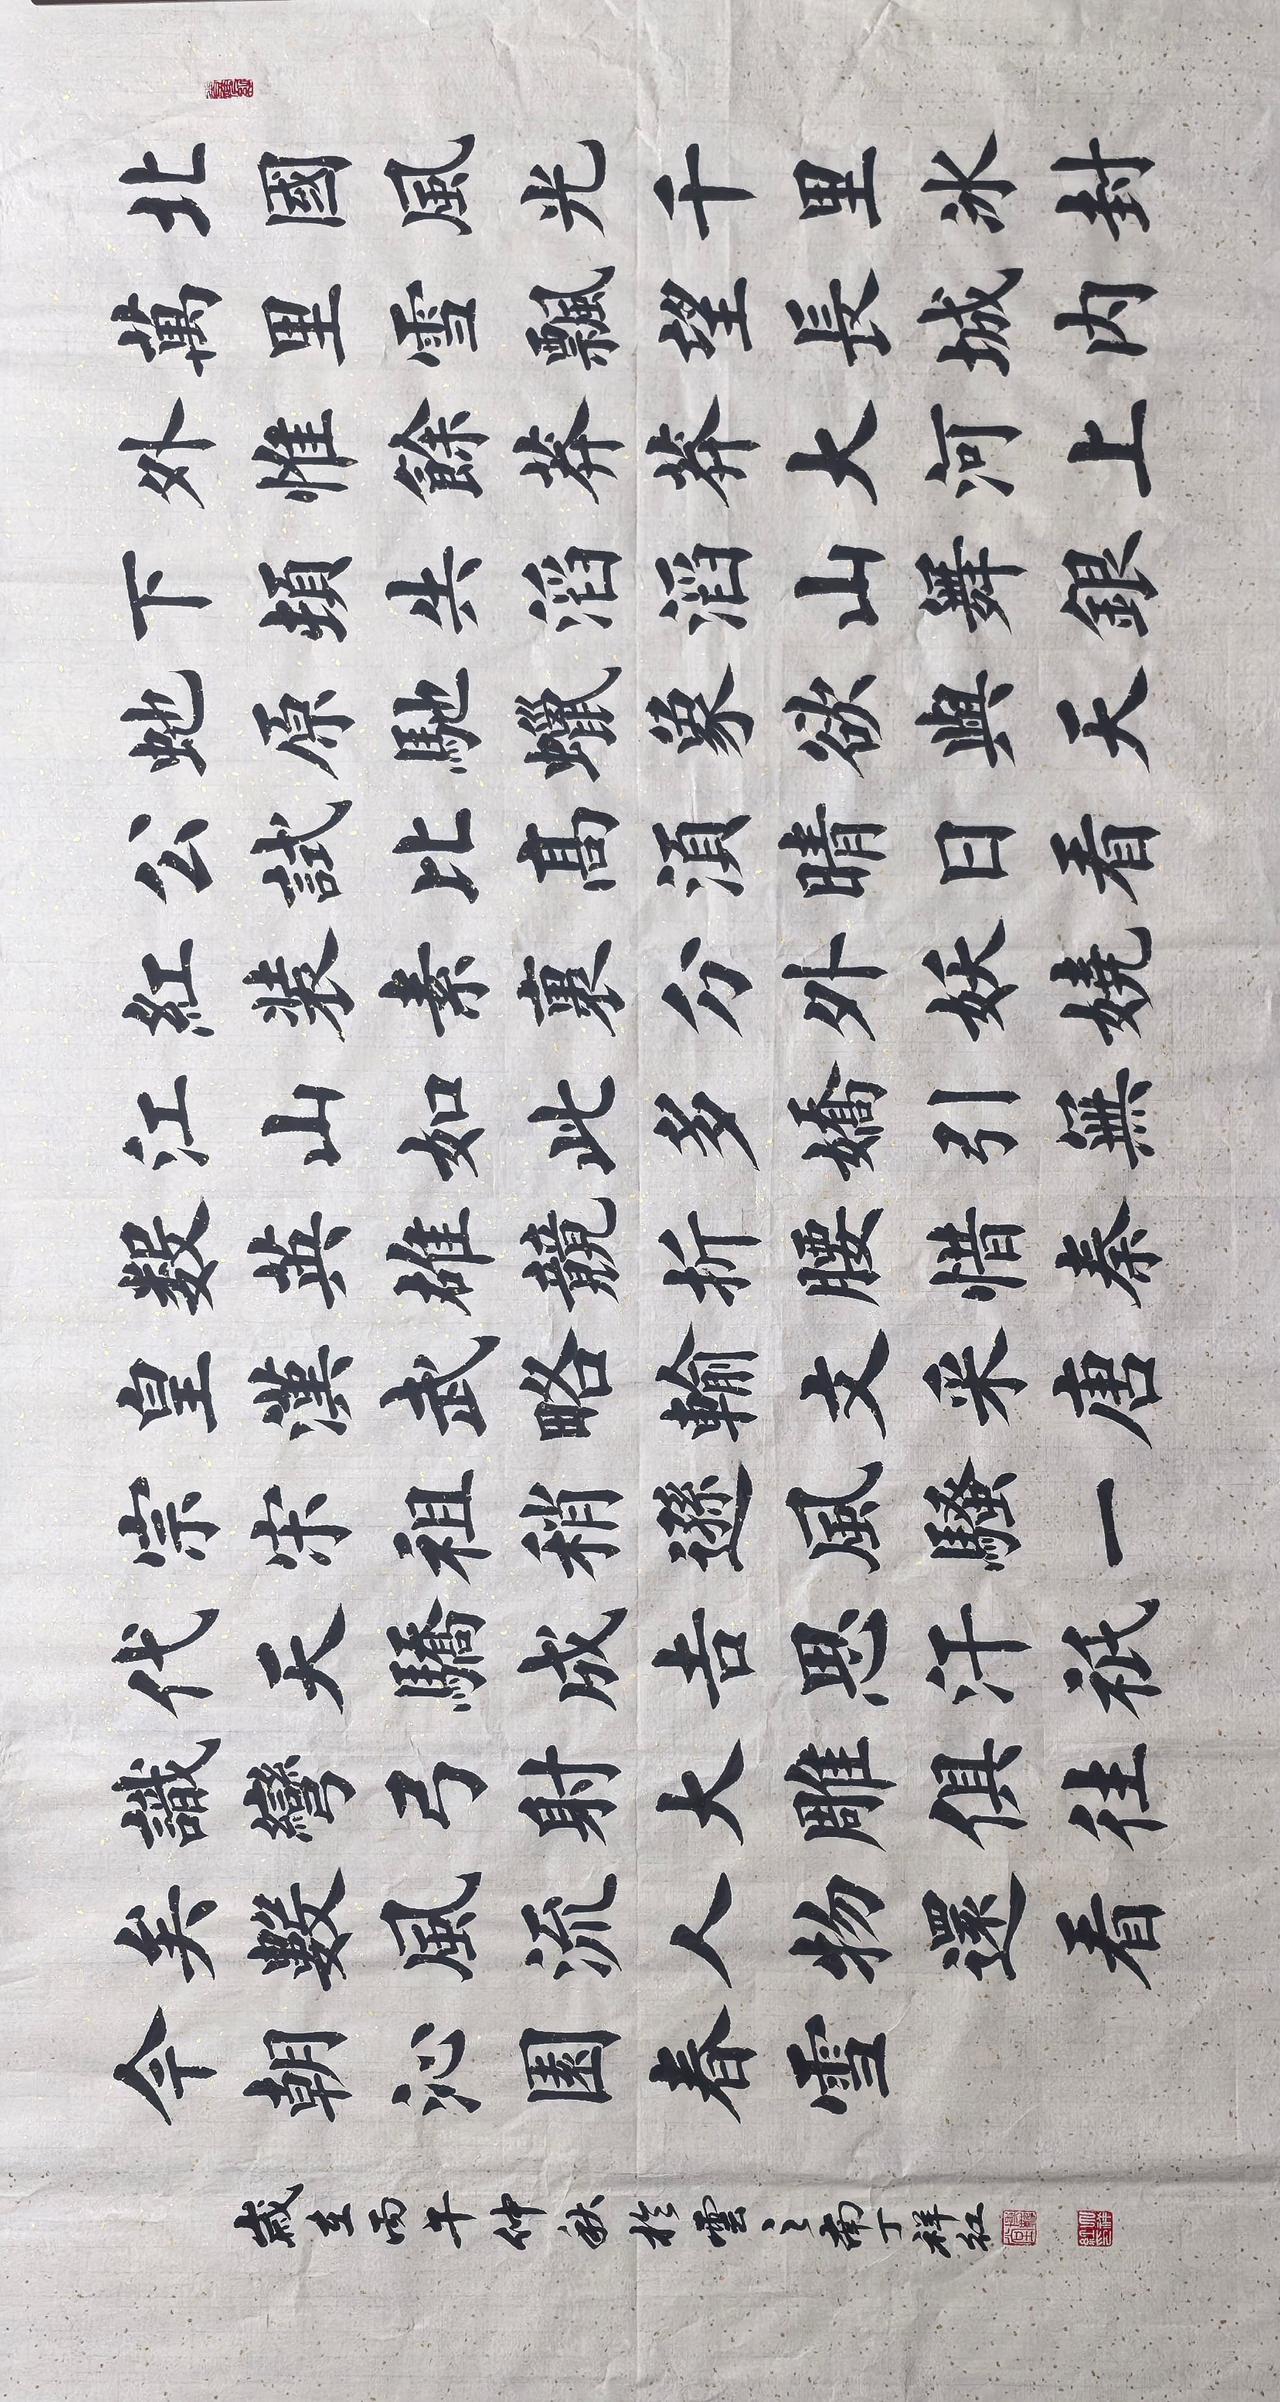 北國風光千里冰封
萬里雪飄望長城内
外惟餘莽莽大河上
下頓失滔滔山舞銀
蛇原馳蠟象欲與天
公試比高須晴日看
紅裝素裹分外妖嬈
江山如此多嬌引無
数英雄競折腰惜秦
皇漢武略輸文采唐
宗宋祖稍遜風騷一
代天驕成吉思汗祇
識彎弓射大雕俱往
矣數風流人物還看
今朝沁園春雪
歲在丙午仲秋於雲之南丁祥紅